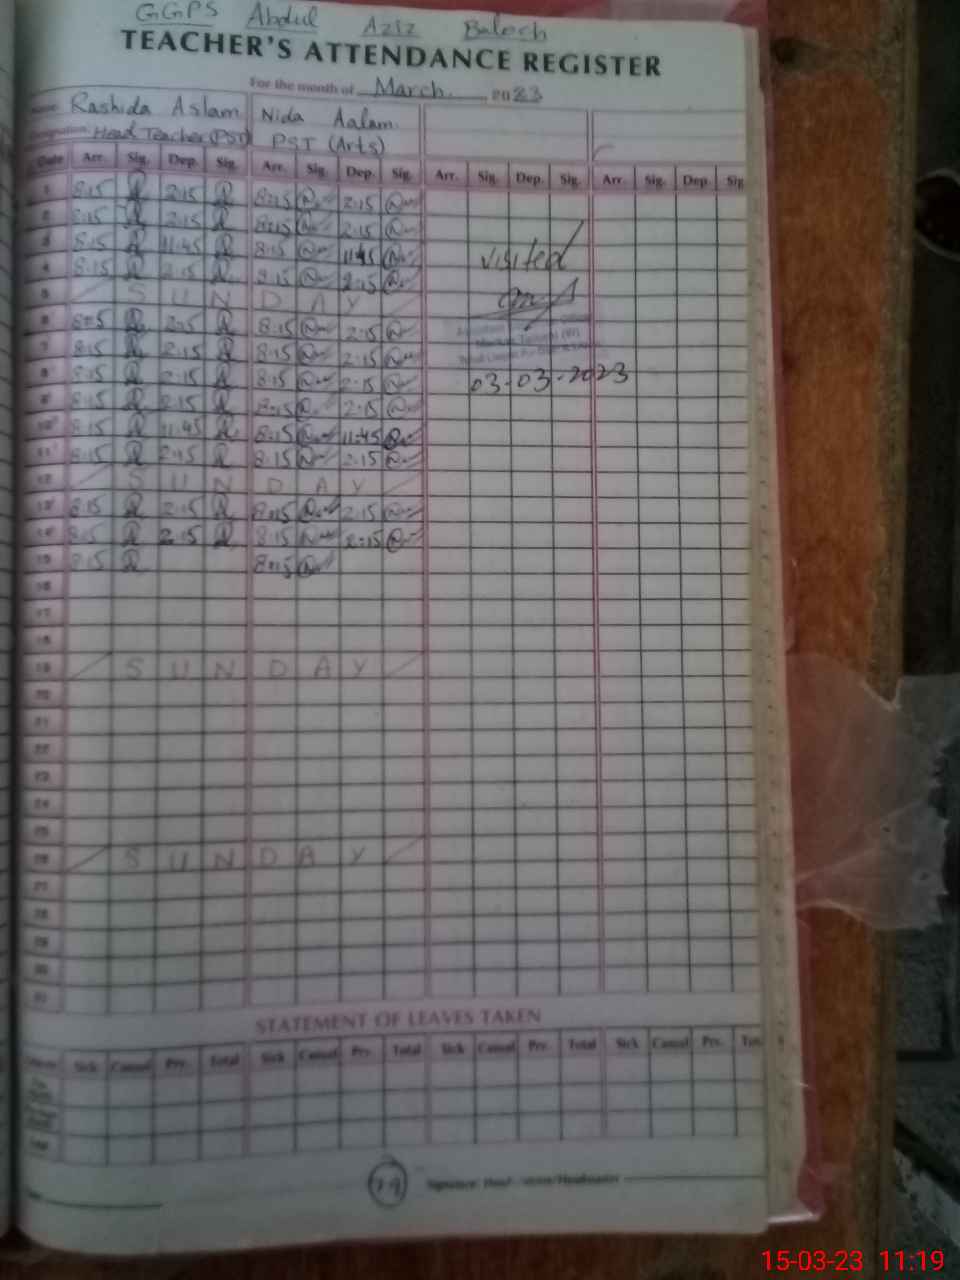 GGPS Abdul Aziz Baloch
TEACHER'S ATTENDANCE REGISTER
For the month of March 2023
Name Rashida Aslam Nida Aalam
Designation Head Teacher (PST) PST (Arts)
Date Arr. Sig. Dep. Sig. Arr. Sig. Dep. Sig. Arr. Sig. Dep. Sig. Arr. Sig. Dep. Sig
1 8:15 2:15 8:15 2:15
2 8:15 2:15 8:15 2:15
3 8:15 11:45 8:15 11:45 visited
4 8:15 2:15 8:15 2:15
5 SUNDAY
6 8:15 2:15 8:15 2:15
7 8:15 2:15 8:15 2:15
8 8:15 2:15 8:15 2:15 03-03-2023
9 8:15 2:15 8:15 2:15
10 8:15 11:45 8:15 11:45
11 8:15 2:15 8:15 2:15
12 SUNDAY
13 8:15 2:15 8:15 2:15
14 8:15 2:15 8:15 2:15
15 8:15 8:15
16
17
18
19 SUNDAY
20
21
22
23
24
25
26 SUNDAY
27
28
29
30
31
STATEMENT OF LEAVES TAKEN
Sick Casual Prv. Total Sick Casual Prv. Total Sick Casual Prv. Total Sick Casual Prv. Tot
79
15-03-23 11:19